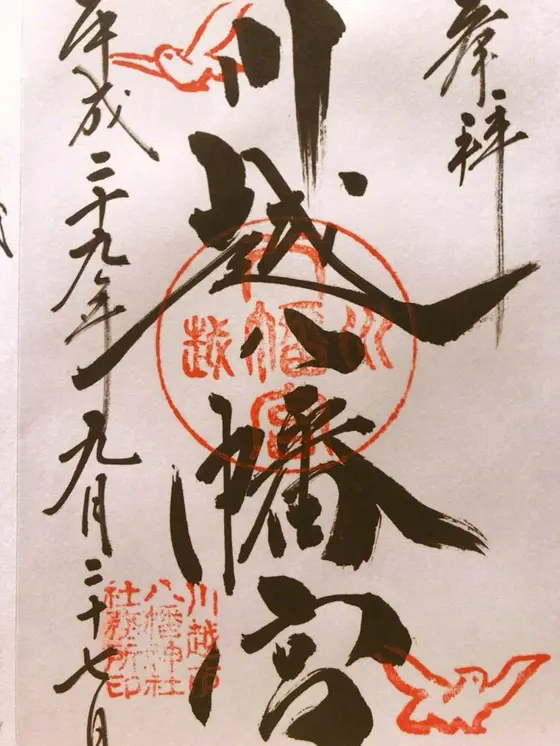 奉拝
川越八幡宮
平成二十九年九月二十七日
川越
八幡宮
川越市
八幡神社
社務所印